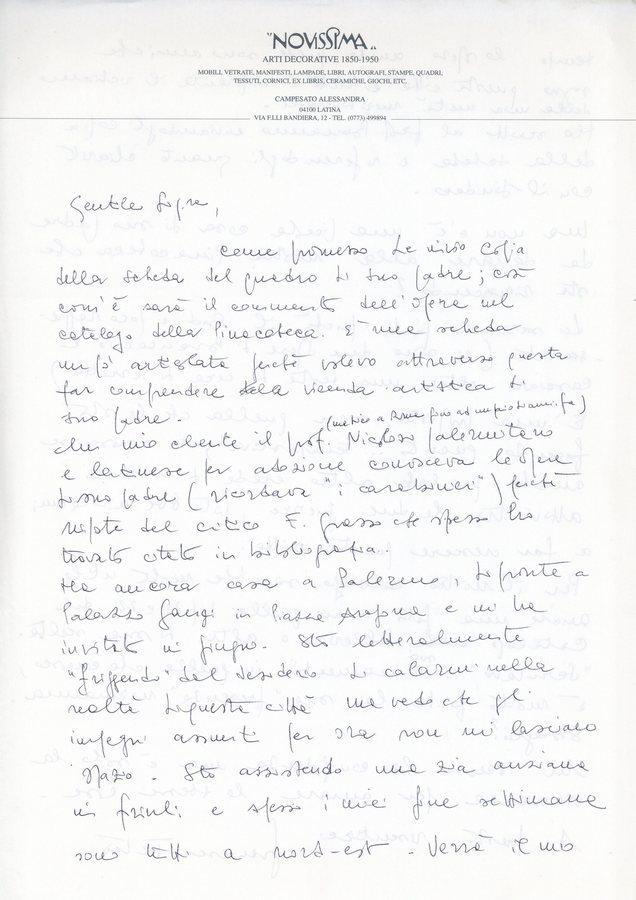 "NOVISSIMA"
ARTI DECORATIVE 1850-1950
MOBILI, VETRATE, MANIFESTI, LAMPADE, LIBRI, AUTOGRAFI, STAMPE, QUADRI,
TESSUTI, CORNICI, EX LIBRIS, CERAMICHE, GIOCHI, ETC.
CAMPESATO ALESSANDRA
04100 LATINA
VIA F.LLI BANDIERA, 12 - TEL. (0773) 499894
Gentile Sig.ra,
come promesso Le invio copia
della scheda del quadro di suo padre; così
com'è sarà il commento dell'opera nel
catalogo della Pinacoteca. E' una scheda
un pò articolata perchè volevo attraverso questa
far comprendere la vicenda artistica di
suo padre.
(medico a Roma fino ad un paio di anni fa)
Un mio cliente il prof. Nicolosi palermitano
e latinense per adozione conosceva le opere
di suo padre (ricordava "i carabinieri") perchè
nipote del critico F. Grasso che spesso ho
trovato citato in bibliografia.
Ha ancora casa a Palermo, di fronte a
Palazzo Gangi in Piazza Aragona e mi ha
invitato in giugno. Sto letteralmente
"friggendo" dal desiderio di calarmi nella
realtà di questa città ma vedo che gli
impegni assunti per ora non mi lasciano
spazio. Sto assistendo una zia anziana
in Friuli e spesso i miei fine settimana
sono tutti a nord-est. Verrà il mio